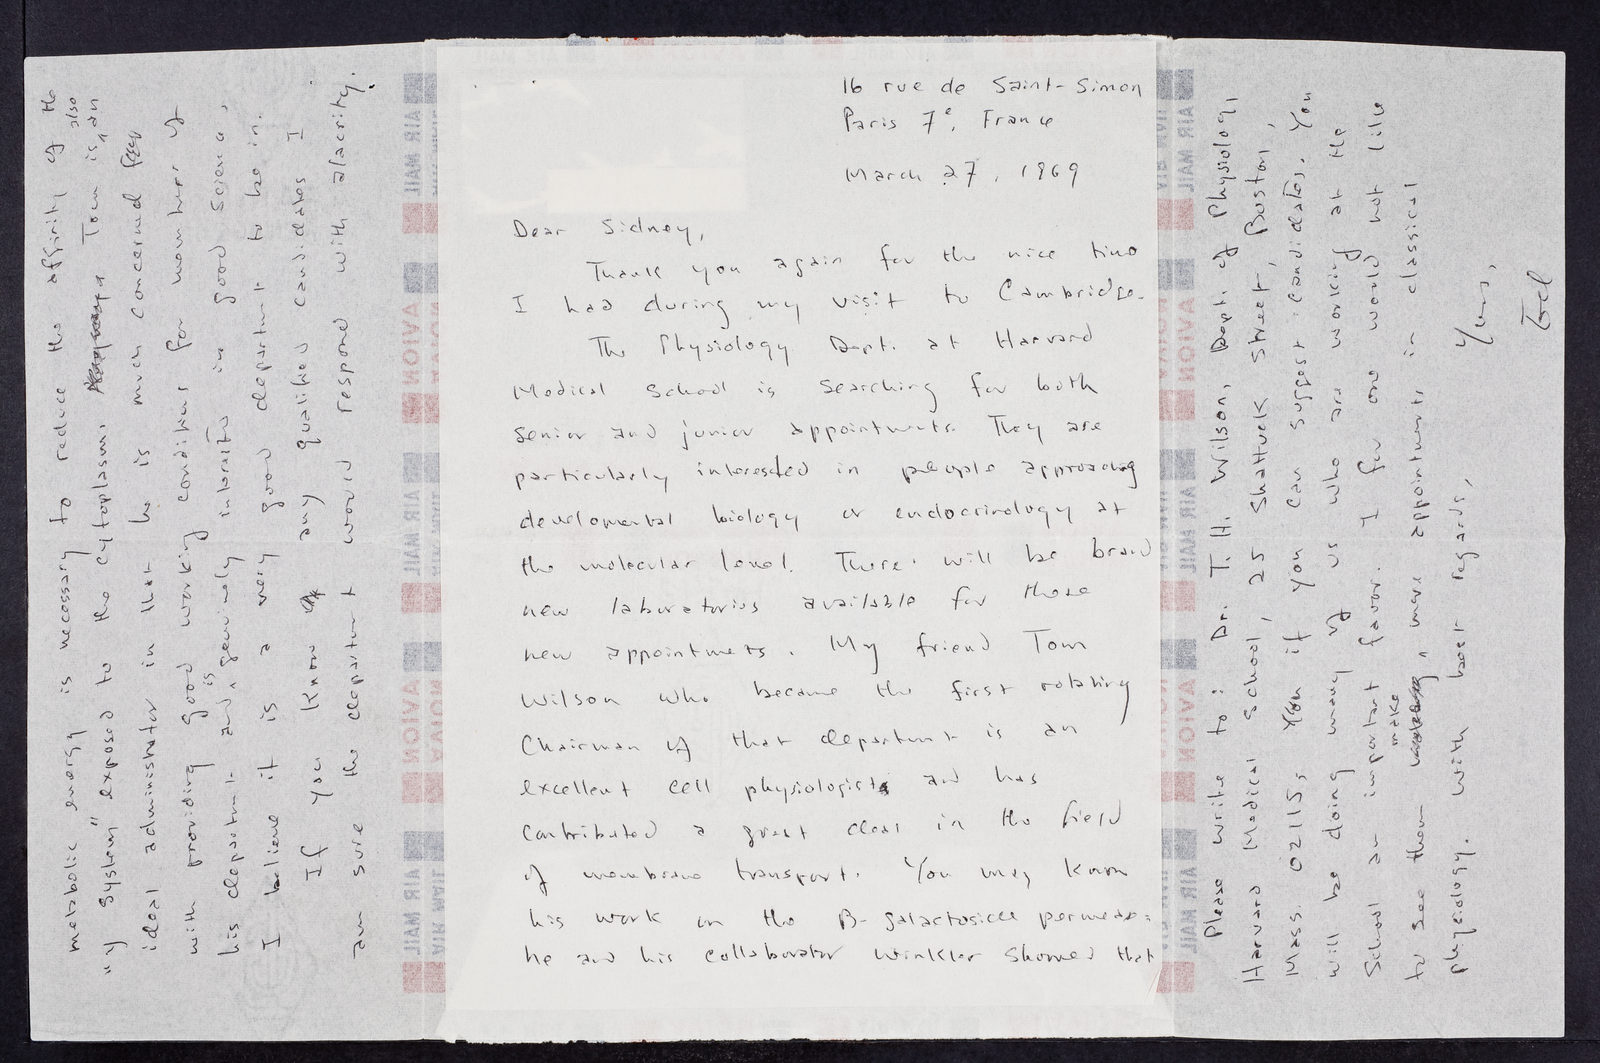 16 rue de Saint-Simon
Paris 7e, France
March 27, 1969
Dear Sidney,
Thank you again for the nice time
I had during my visit to Cambridge.
The Physiology Dept. at Harvard
Medical School is searching for both
senior and junior appointments. They are
particularly interested in people approaching
developmental biology or endocrinology at
the molecular level. There will be brand
new laboratories available for these
new appointments. My friend Tom
Wilson who became the first rotating
Chairman of that department is an
excellent cell physiologist and has
contributed a great deal in the field
of membrane transport. You may know
his work on the B-galactoside permease:
he and his collaborator Winkler showed that
metabolic energy is necessary to reduce the affinity of the
"y system" exposed to the cytoplasm. Tom is also an
ideal administrator in that he is much concerned
with providing good working conditions for members of
his department and is genuinely interested in good science.
I believe it is a very good department to be in.
If you know any qualified candidates I
am sure the department would respond with alacrity.
Please write to: Dr. T. H. Wilson, Dept. of Physiology
Harvard Medical School, 25 Shattuck Street, Boston,
Mass. 02115, if you can suggest candidates. You
will be doing many of us who are working at the
School an important favor. I for one would not like
to see them make more appointments in classical
physiology. With best regards,
Yours,